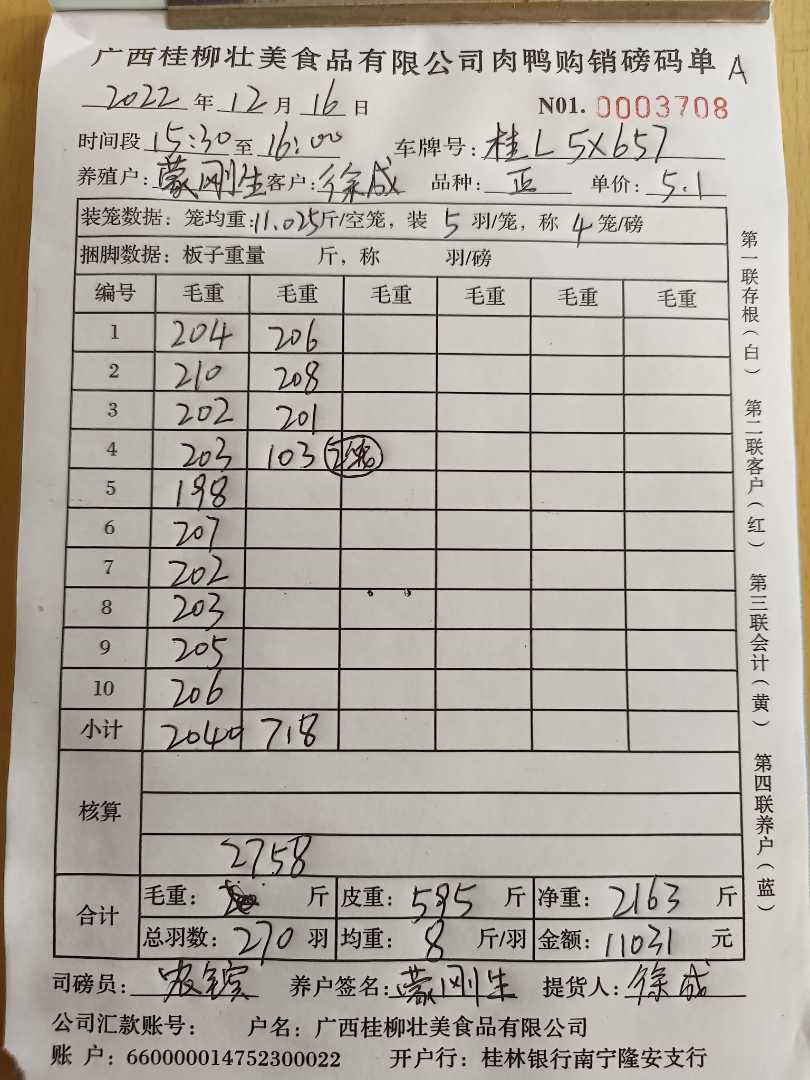 广西桂柳壮美食品有限公司肉鸭购销磅码单 A
2022 年 12 月 16 日 N01. 0003708
时间段 15:30 至 16:00 车牌号: 桂L 5X657
养殖户: 蒙刚生 客户: 徐成 品种: 正 单价: 5.1
装笼数据: 笼均重: 11.025 斤/空笼, 装 5 羽/笼, 称 4 笼/磅
捆脚数据: 板子重量 斤, 称 羽/磅
编号 毛重 毛重 毛重 毛重 毛重 毛重
1 204 206
2 210 208
3 202 201
4 203 103
5 198
6 207
7 202
8 203
9 205
10 206
小计 2040 718
核算
2758
合计
毛重: 斤 皮重: 595 斤 净重: 2163 斤
总羽数: 270 羽 均重: 8 斤/羽 金额: 11031 元
司磅员: 养户签名: 蒙刚生 提货人: 徐成
公司汇款账号: 户名: 广西桂柳壮美食品有限公司
账 户: 660000014752300022 开户行: 桂林银行南宁隆安支行
第一联存根(白) 第二联客户(红) 第三联会计(黄) 第四联养户(蓝)